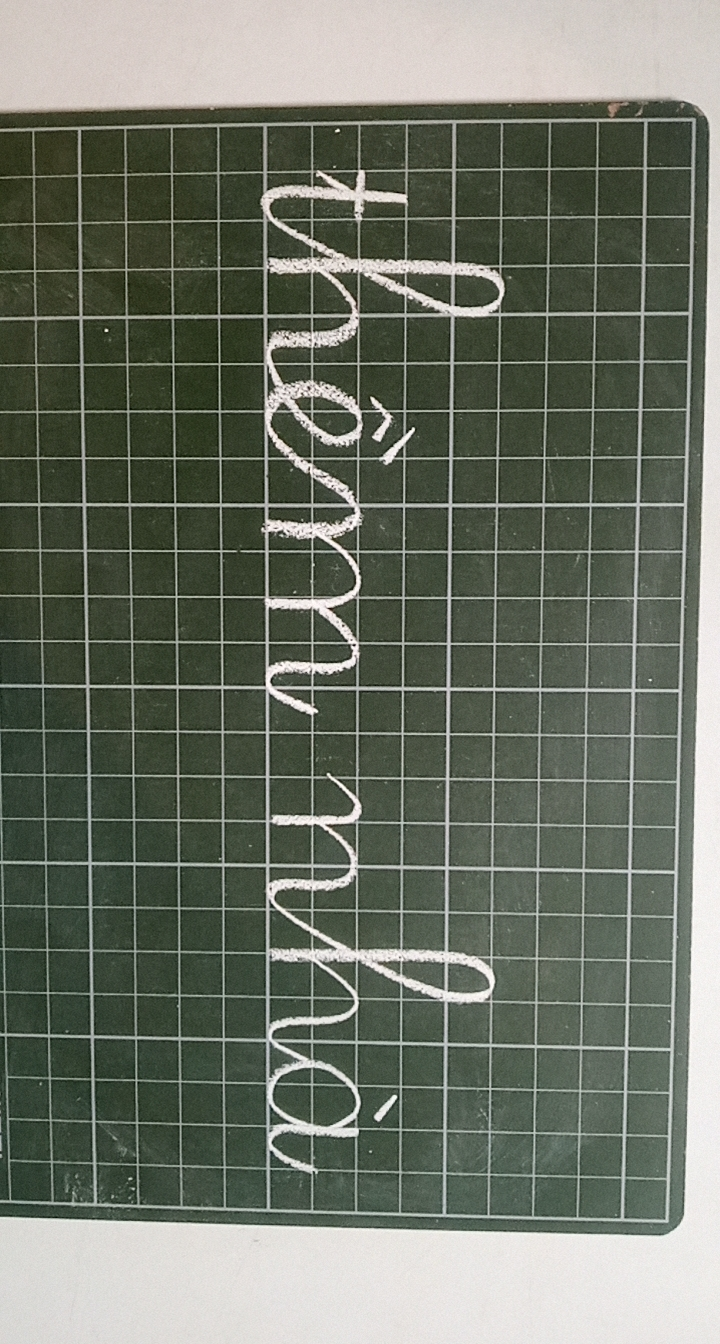 thềm nhà